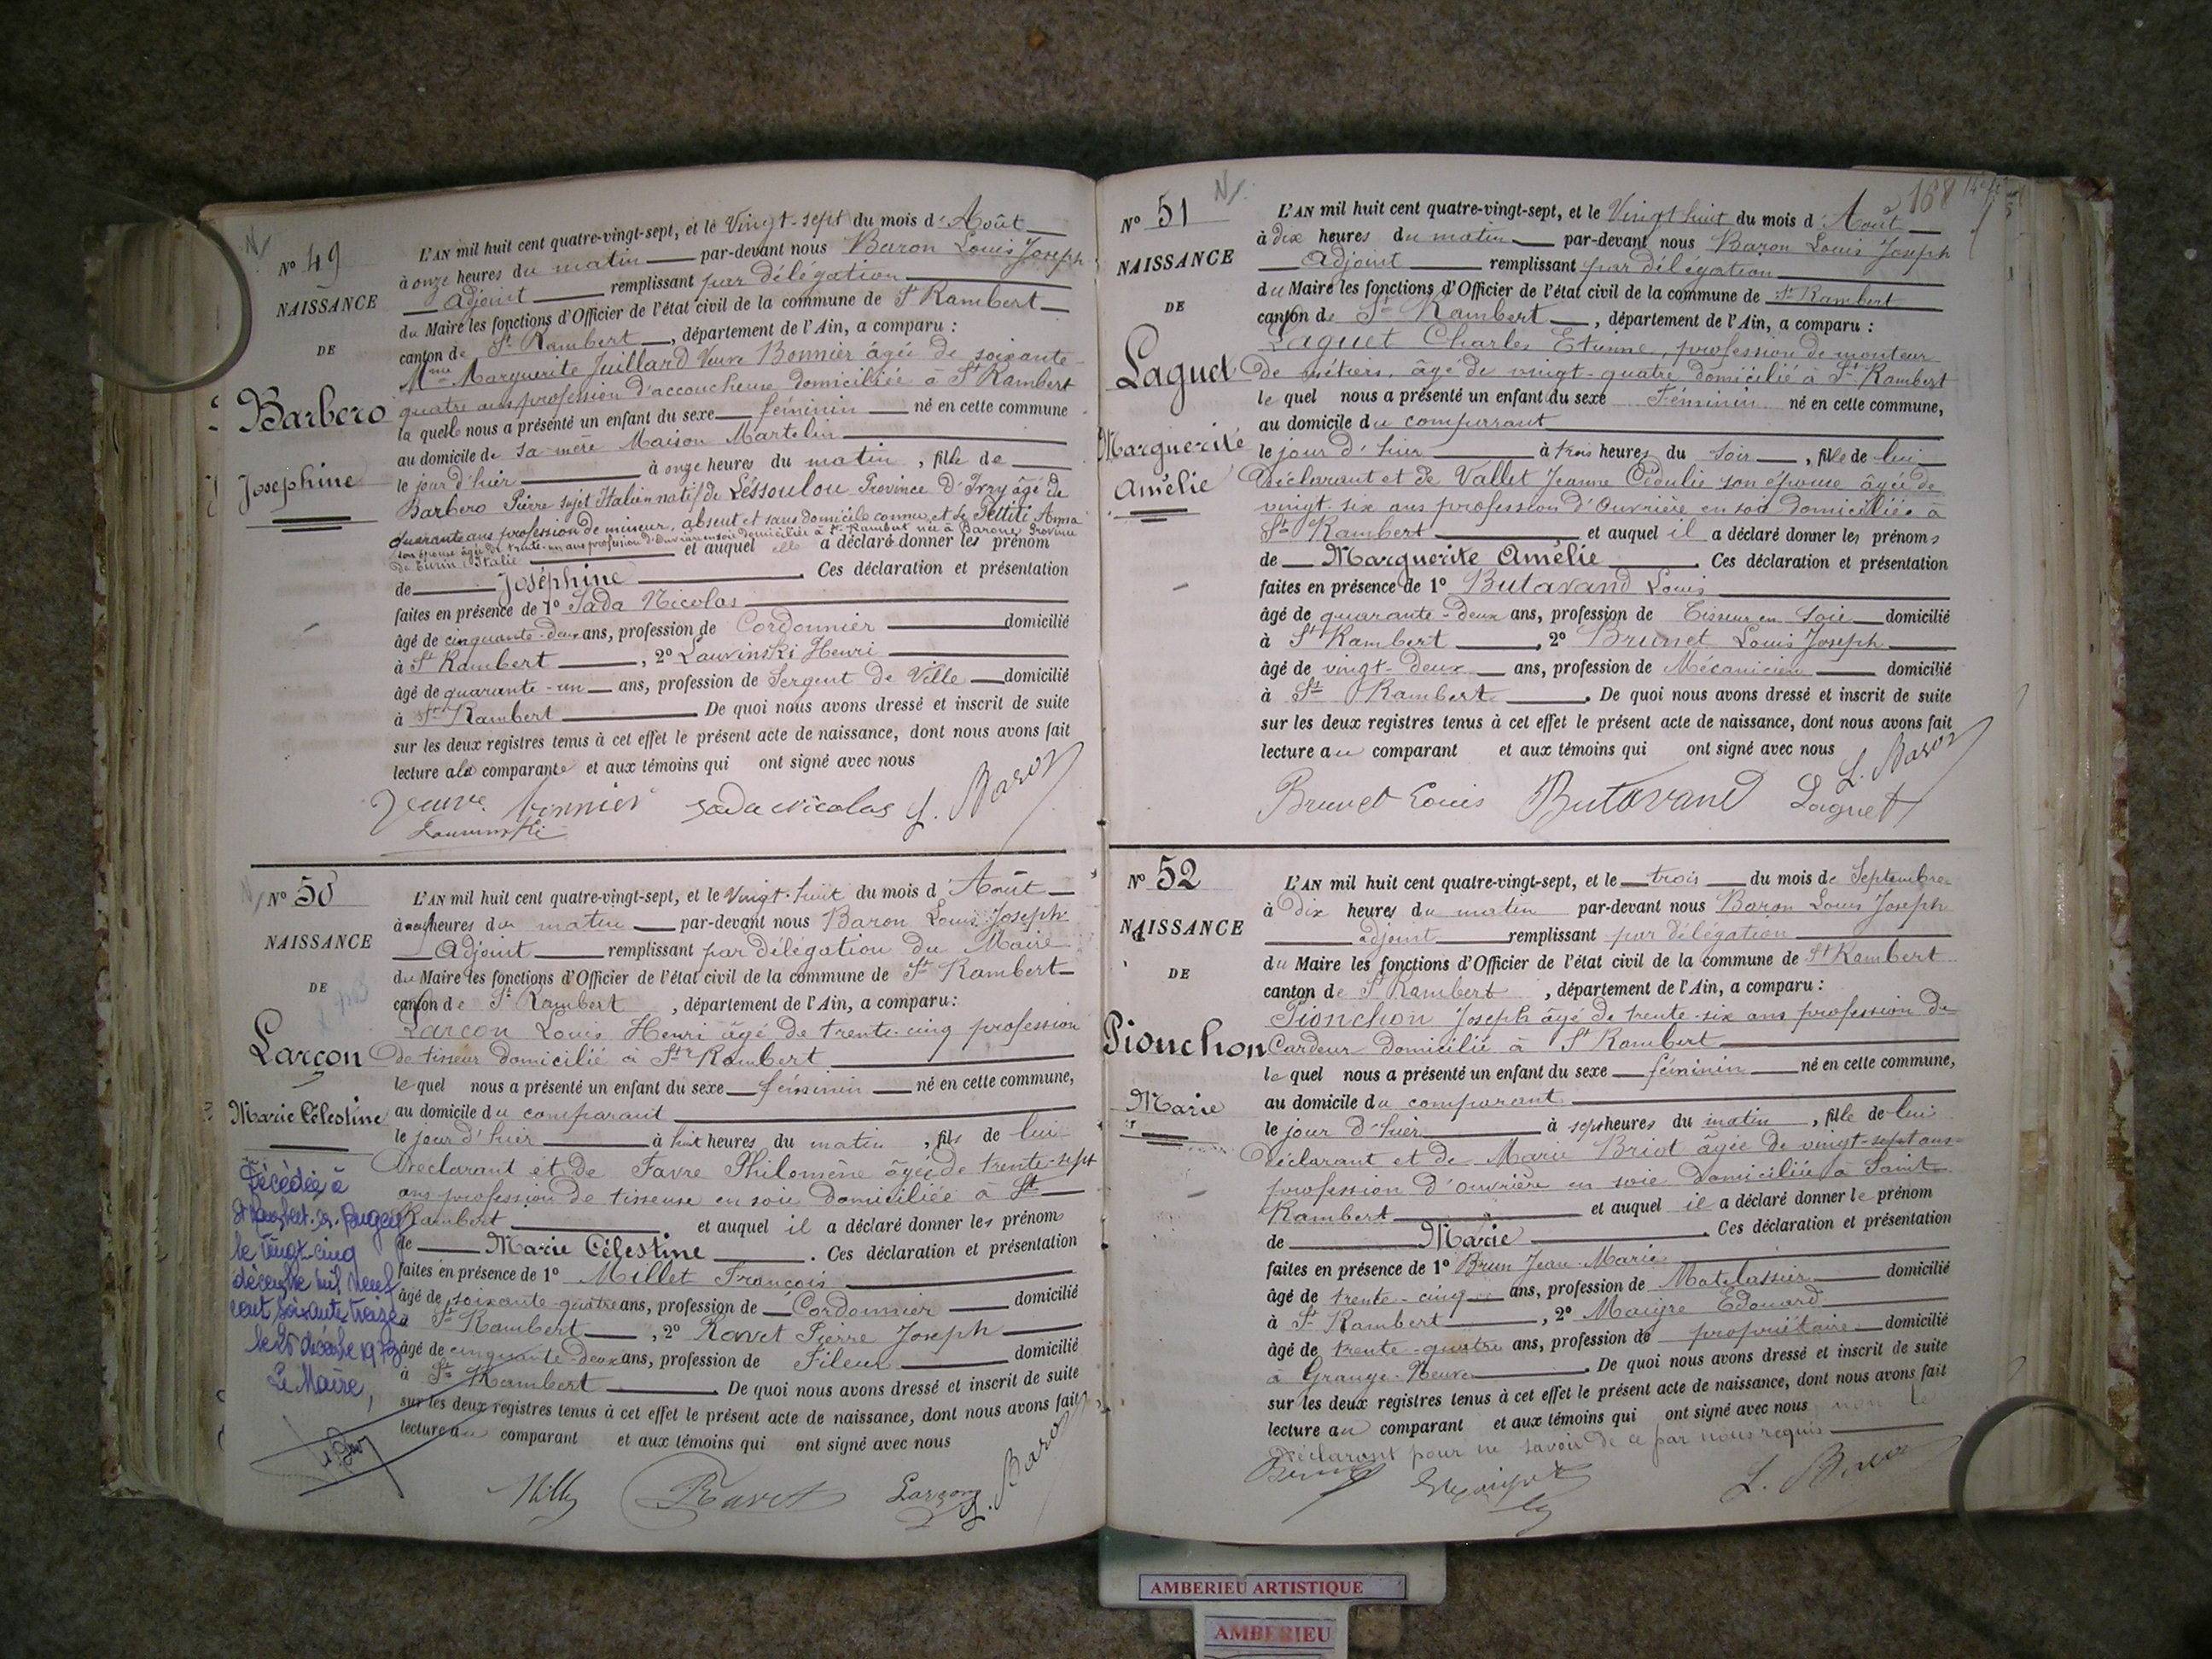 N° 49
NAISSANCE
DE
Barbero
Josephine
L'AN mil huit cent quatre-vingt-sept, et le Vingt-sept du mois d'Août
à onze heures du matin par-devant nous Baron Louis Joseph
Adjoint remplissant par délégation
du Maire les fonctions d'Officier de l'état civil de la commune de St Rambert
canton de St Rambert, département de l'Ain, a comparu :
Mme Marguerite Juillard Veuve Bonnier âgée de soixante-
quatre ans profession d'accoucheuse domiciliée à St Rambert
la quelle nous a présenté un enfant du sexe féminin né en cette commune
au domicile de sa mère Maison Martelin
le jour d'hier à onze heures du matin, fille de
Barbero Pierre sujet Italien natif de Léssoulou Province d'Ivry âgé de
quarante ans profession de mineur, absent et sans domicile connu, et de Pettiti Anna
son épouse âgée de trente-un ans profession d'ouvrière en soie domiciliée à St Rambert née à Barone Province
de Turin, Italie et auquel elle a déclaré donner les prénom
de Joséphine. Ces déclaration et présentation
faites en présence de 1° Sada Nicolas
âgé de cinquante-deux ans, profession de Cordonnier domicilié
à St Rambert, 2° Lauvinski Henri
âgé de quarante-un ans, profession de Sergent de Ville domicilié
à St Rambert De quoi nous avons dressé et inscrit de suite
sur les deux registres tenus à cet effet le présent acte de naissance, dont nous avons fait
lecture à la comparante et aux témoins qui ont signé avec nous
Veuve Bonnier Sada Nicolas L. Baron
Lauvinski
N° 50
NAISSANCE
DE
Larcon
Marie Célestine
Décédée à
St Rambert-en-Bugey
le vingt-cinq
décembre mil neuf
cent soixante treize
le 26 décembre 1973
Le Maire,
L'AN mil huit cent quatre-vingt-sept, et le Vingt-huit du mois d'Août
à neuf heures du matin par-devant nous Baron Louis Joseph
Adjoint remplissant par délégation du Maire
du Maire les fonctions d'Officier de l'état civil de la commune de St Rambert
canton de St Rambert, département de l'Ain, a comparu :
Larcon Louis Henri âgé de trente-cinq profession
de tisseur domicilié à St Rambert
le quel nous a présenté un enfant du sexe féminin né en cette commune,
au domicile du comparant
le jour d'hier à huit heures du matin, fils de lui
Déclarant et de Favre Philomène âgée de trente-sept
ans profession de tisseuse en soie domiciliée à St
Rambert et auquel il a déclaré donner les prénom
de Marie Célestine. Ces déclaration et présentation
faites en présence de 1° Millet François
âgé de soixante-quatre ans, profession de Cordonnier domicilié
à St Rambert, 2° Ravet Pierre Joseph
âgé de cinquante-deux ans, profession de Fileur domicilié
à St Rambert. De quoi nous avons dressé et inscrit de suite
sur les deux registres tenus à cet effet le présent acte de naissance, dont nous avons fait
lecture au comparant et aux témoins qui ont signé avec nous
Ravet Larcon L. Baron
168
N° 51
NAISSANCE
DE
Laguet
Marguerite
Amélie
L'AN mil huit cent quatre-vingt-sept, et le Vingt huit du mois d'Août
à dix heures du matin par-devant nous Baron Louis Joseph
Adjoint remplissant par délégation
du Maire les fonctions d'Officier de l'état civil de la commune de St Rambert
canton de St Rambert, département de l'Ain, a comparu :
Laguet Charles Etienne, profession de monteur
de métiers, âgé de vingt-quatre domicilié à St Rambert
le quel nous a présenté un enfant du sexe Féminin né en cette commune,
au domicile du comparant
le jour d'hier à trois heures du soir, fille de lui
Déclarant et de Vallet Jeanne Cédulie son épouse âgée de
vingt-six ans profession d'Ouvrière en soie domiciliée à
St Rambert et auquel il a déclaré donner les prénoms
de Marguerite Amélie. Ces déclaration et présentation
faites en présence de 1° Butavand Louis
âgé de quarante-deux ans, profession de Tisseur en Soie domicilié
à St Rambert, 2° Brunet Louis Joseph
âgé de vingt-deux ans, profession de Mécanicien domicilié
à St Rambert. De quoi nous avons dressé et inscrit de suite
sur les deux registres tenus à cet effet le présent acte de naissance, dont nous avons fait
lecture au comparant et aux témoins qui ont signé avec nous
L. Baron
Brunet Louis Butavand Laguet
N° 52
NAISSANCE
DE
Pionchon
Marie
L'AN mil huit cent quatre-vingt-sept, et le trois du mois de Septembre
à dix heures du matin par-devant nous Baron Louis Joseph
adjoint remplissant par délégation
du Maire les fonctions d'Officier de l'état civil de la commune de St Rambert
canton de St Rambert, département de l'Ain, a comparu :
Pionchon Joseph âgé de trente-six ans profession de
Cardeur domicilié à St Rambert
le quel nous a présenté un enfant du sexe féminin né en cette commune,
au domicile du comparant
le jour d'hier à sept heures du matin, fille de lui
Déclarant et de Marie Briot âgée de vingt-sept ans
profession d'ouvrière en soie domiciliée à Saint
Rambert et auquel il a déclaré donner le prénom
de Marie. Ces déclaration et présentation
faites en présence de 1° Brun Jean Marie
âgé de trente-cinq ans, profession de Matelassier domicilié
à St Rambert, 2° Maigre Edouard
âgé de trente-quatre ans, profession de propriétaire domicilié
à Grange-Neuve. De quoi nous avons dressé et inscrit de suite
sur les deux registres tenus à cet effet le présent acte de naissance, dont nous avons fait
lecture au comparant et aux témoins qui ont signé avec nous non le
Déclarant pour ne savoir de ce par nous requis
L. Baron
AMBERIEU ARTISTIQUE
AMBERIEU